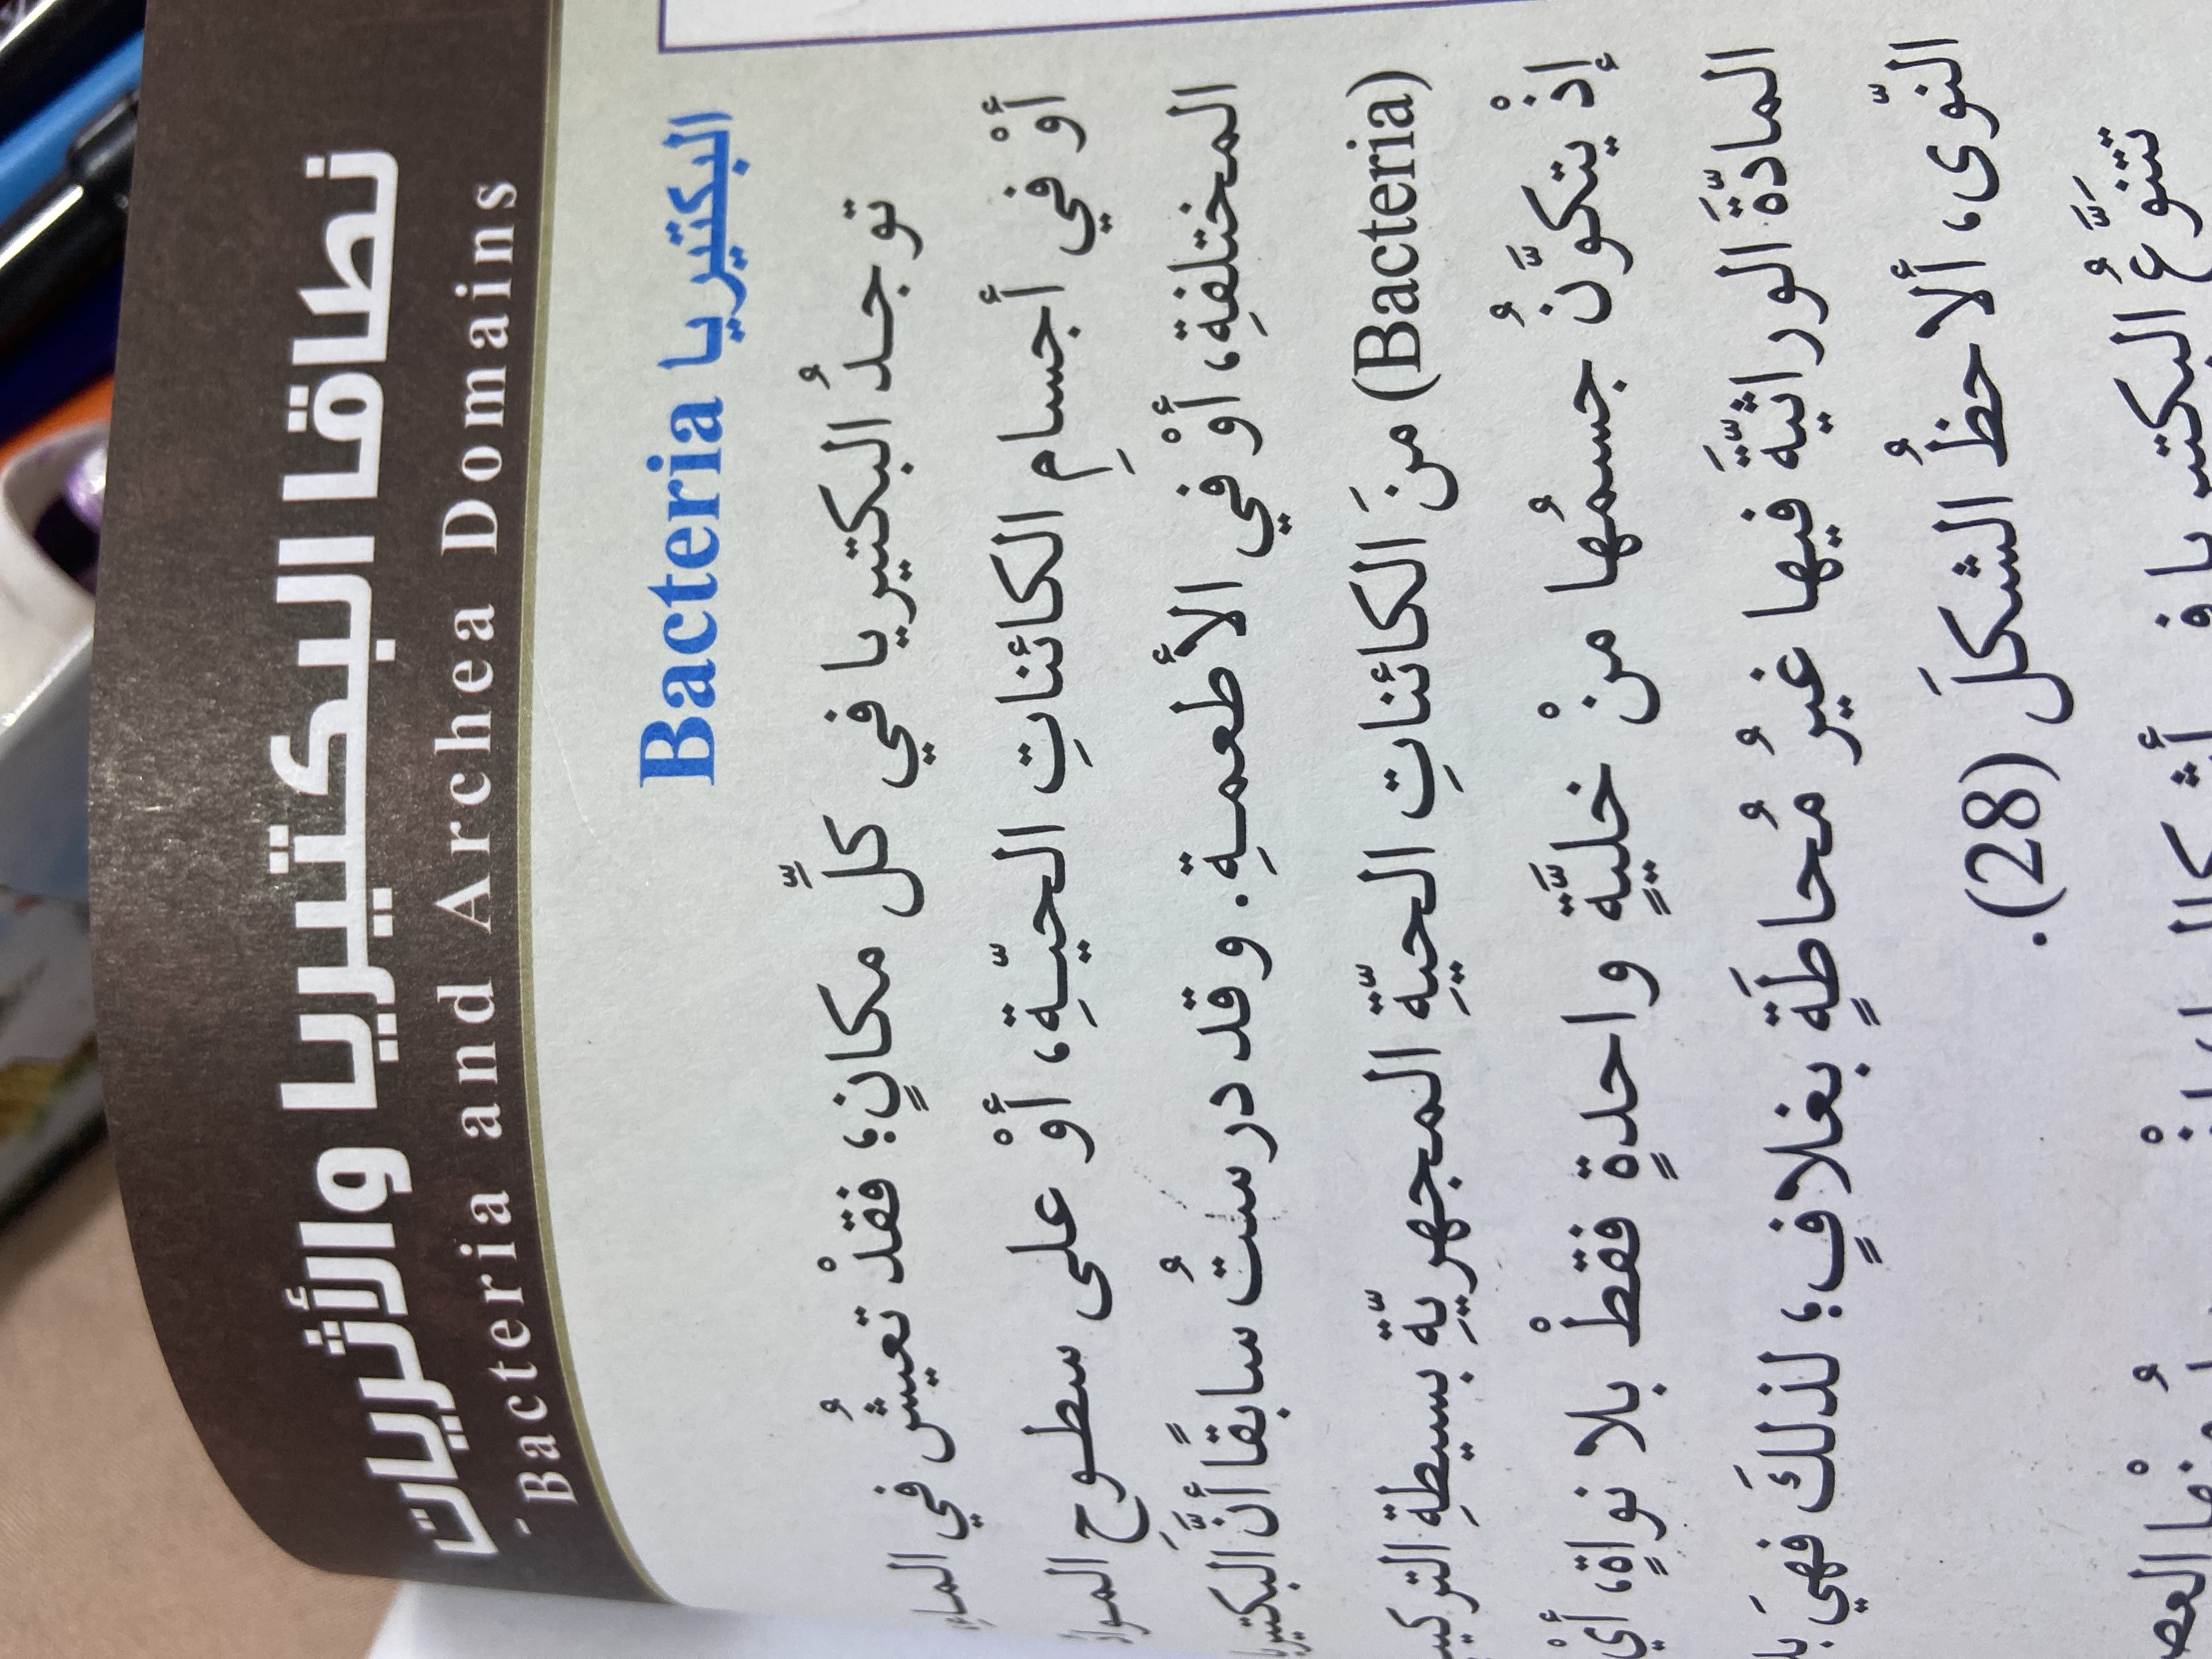 نطاقا البكتيريا والأثريات
Bacteria and Archea Domains
البكتيريا Bacteria
توجدُ البكتيريا في كلِّ مكانٍ؛ فقدْ تعيشُ في الماءِ
أوْ في أجسامِ الكائناتِ الحيّةِ، أوْ على سطوحِ الموادِّ
المختلفةِ، أوْ في الأطعمةِ. وقد درستُ سابقًا أنَّ البكتيريا
(Bacteria) منَ الكائناتِ الحيّةِ المجهريّةِ بسيطةِ
إذْ يتكوَّنُ جسمُها منْ خليَّةٍ واحدةٍ فقطْ بلا نواةٍ، أيْ
المادّةَ الوراثيّةَ فيها غيرُ مُحاطَةٍ بغلافٍ؛ لذلكَ فهيَ
النّوى، ألاحظُ الشكلَ (28).
تتنوَّعُ